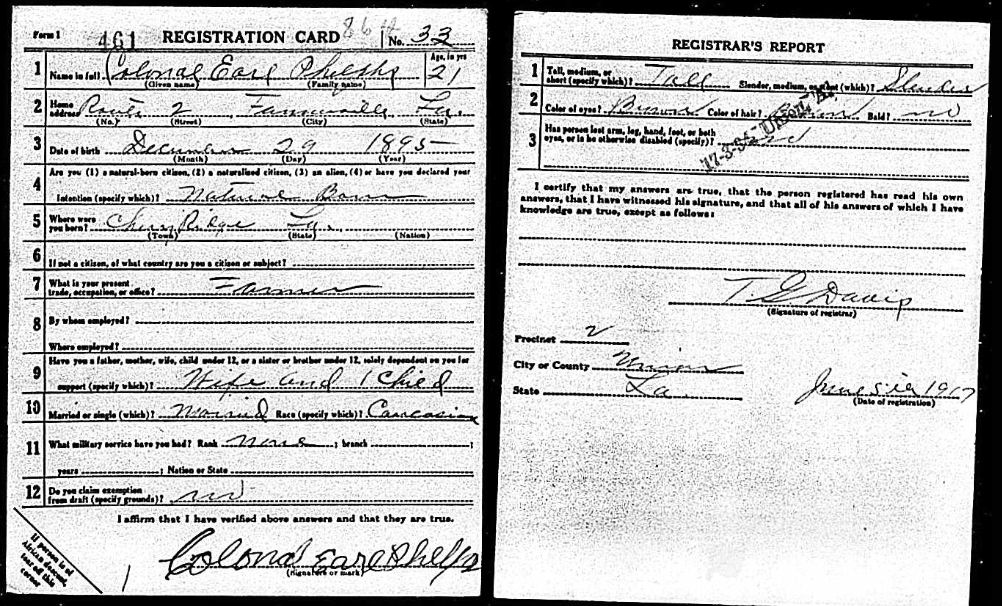 Form 1 461 REGISTRATION CARD 86 No. 33
1 Name in full Colonal Earl Phelps Age, in yrs 21
(Given name) (Family name)
2 Home address Route 2 Farmerville La.
(No.) (Street) (City) (State)
3 Date of birth December 29 1895
(Month) (Day) (Year)
4 Are you (1) a natural-born citizen, (2) a naturalized citizen, (3) an alien, (4) or have you declared your
intention (specify which)? Natural Born
5 Where were you born? Cherry Ridge La.
(Town) (State) (Nation)
6 If not a citizen, of what country are you a citizen or subject?
7 What is your present trade, occupation, or office? Farmer
8 By whom employed?
Where employed?
9 Have you a father, mother, wife, child under 12, or a sister or brother under 12, solely dependent on you for
support (specify which)? Wife and 1 Child
10 Married or single (which)? Married Race (specify which)? Caucasian
11 What military service have you had? Rank none ; branch ;
years ; Nation or State
12 Do you claim exemption from draft (specify grounds)? no
I affirm that I have verified above answers and that they are true.
Colonal Earl Phelps
(Signature or mark)
If person is of
African descent,
tear off this
corner
1
REGISTRAR'S REPORT
1 Tall, medium, or short (specify which)? Tall Slender, medium, or stout (which)? Slender
2 Color of eyes? Brown Color of hair? Brown Bald? no
3 Has person lost arm, leg, hand, foot, or both eyes, or is he otherwise disabled (specify)?
17-3-34
I certify that my answers are true, that the person registered has read his own
answers, that I have witnessed his signature, and that all of his answers of which I have
knowledge are true, except as follows:
T. G. Davis
(Signature of registrar)
Precinct 2
City or County Union
State La. June 5 1917
(Date of registration)